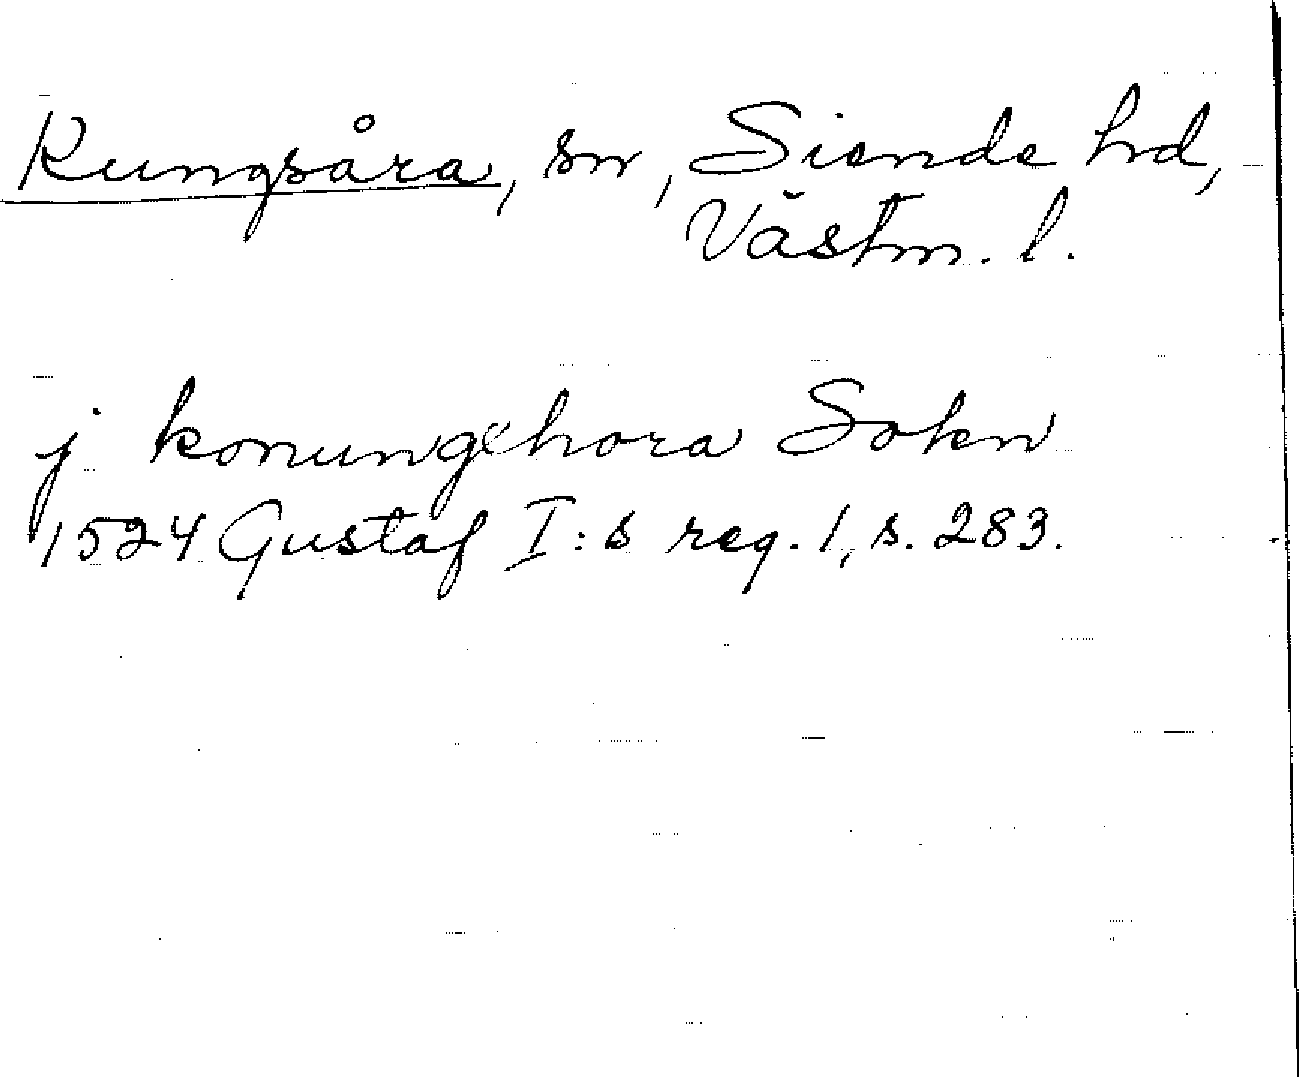 Kungsåra, sn, Siende hd,
Västm. l.
j konungxhora Sokn
1524 Gustaf I:s reg. 1, s. 283.